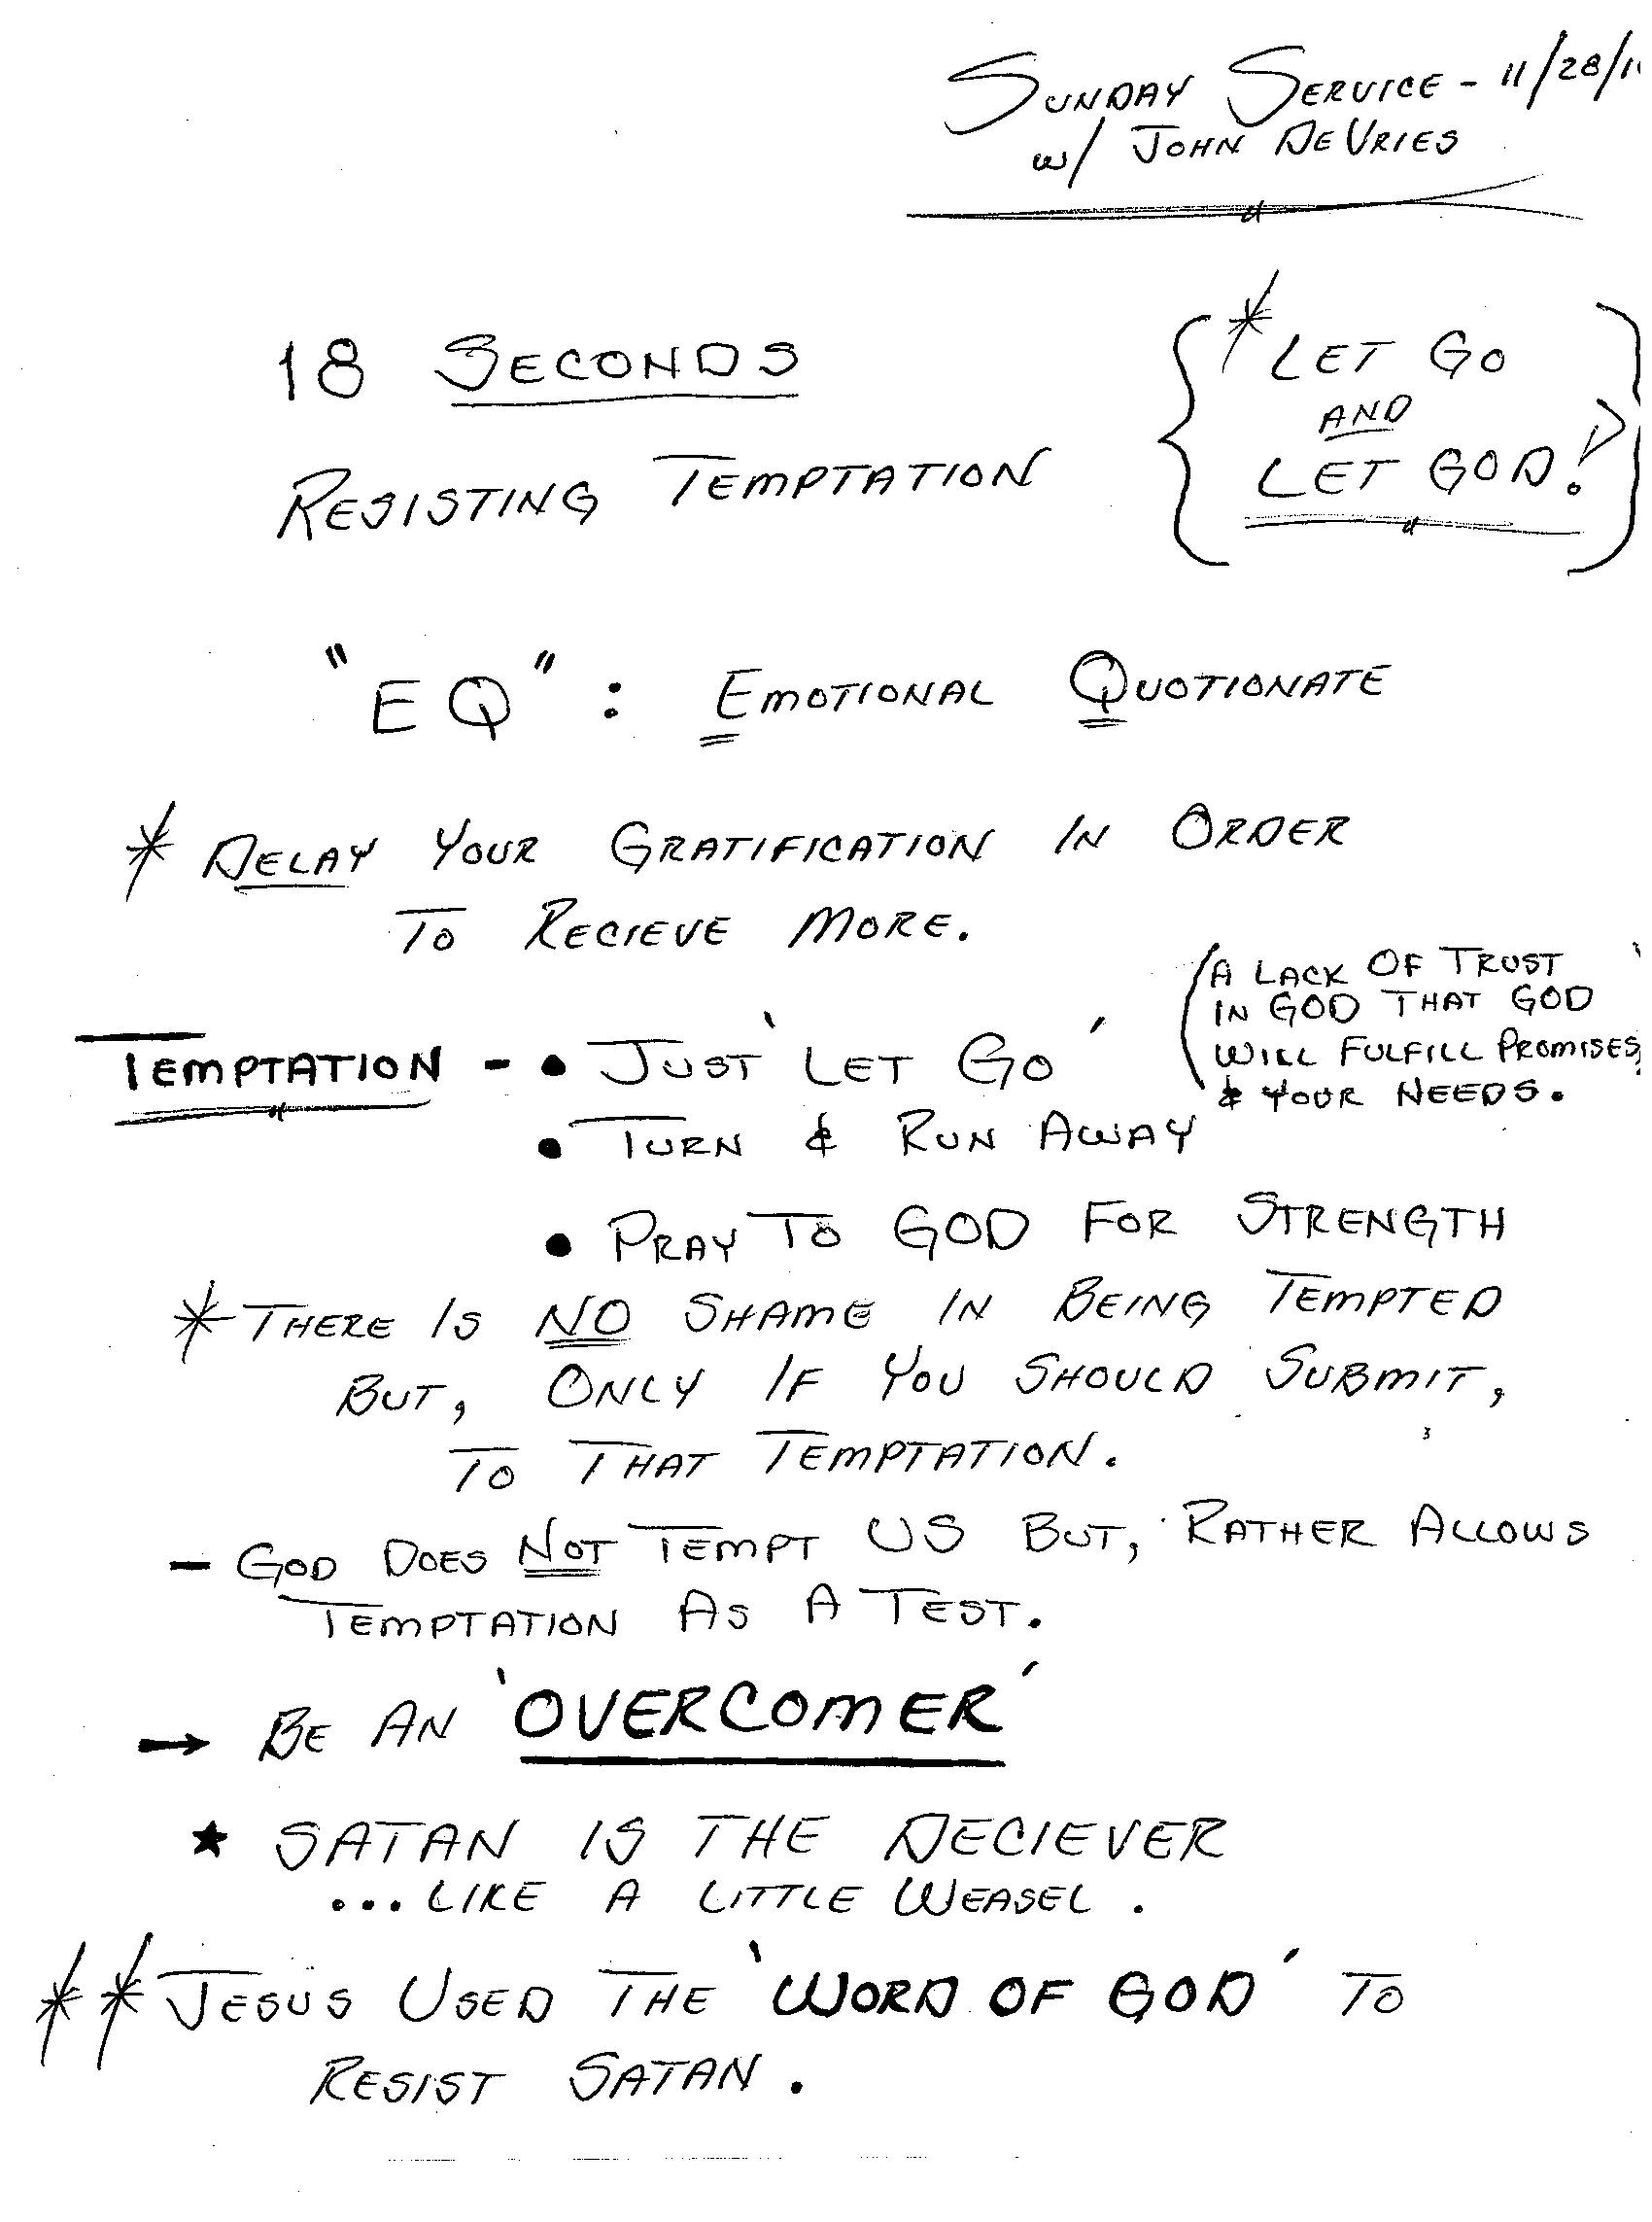 SUNDAY SERVICE - 11/28/1
w/ JOHN DEVRIES
18 SECONDS
RESISTING TEMPTATION
* LET GO
AND
LET GOD!
"EQ" : EMOTIONAL QUOTIONATE
* DELAY YOUR GRATIFICATION IN ORDER
TO RECIEVE MORE.
(A LACK OF TRUST
IN GOD THAT GOD
WILL FULFILL PROMISES
& YOUR NEEDS.
TEMPTATION - • JUST 'LET GO'
• TURN & RUN AWAY
• PRAY TO GOD FOR STRENGTH
* THERE IS NO SHAME IN BEING TEMPTED
BUT, ONLY IF YOU SHOULD SUBMIT,
TO THAT TEMPTATION.
- GOD DOES NOT TEMPT US BUT, RATHER ALLOWS
TEMPTATION AS A TEST.
→ BE AN 'OVERCOMER'
★ SATAN IS THE DECIEVER
... LIKE A LITTLE WEASEL.
** JESUS USED THE 'WORD OF GOD' TO
RESIST SATAN.